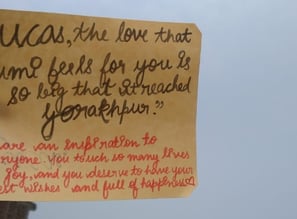 ucas, the love that
umi feels for you is
so big that it reached
Gorakhpur."
are an inspiration to
ryone. You touch so many lives
joy, and you deserve to have your
est wishes and full of happiness